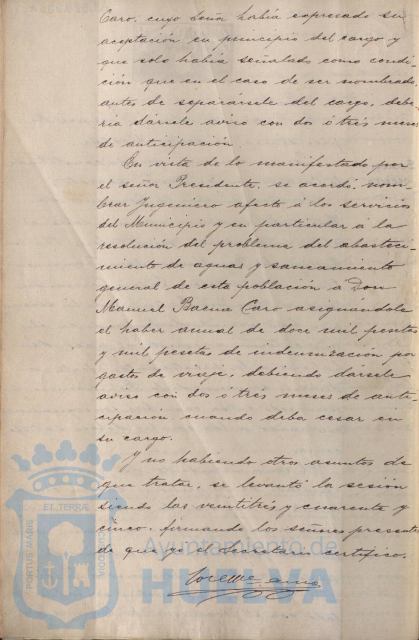 Caro, cuyo señor había expresado su
aceptación en principio del cargo y
que solo había señalado como condi-
ción que en el caso de ser nombrado,
antes de separársele del cargo, debe-
ría dársele aviso con dos ó tres meses
de anticipación.
En vista de lo manifestado por
el señor Presidente, se acordó, nom-
brar Ingeniero afecto á los servicios
del Municipio y en particular á la
resolución del problema del abasteci-
miento de aguas y saneamiento
general de esta población á Don
Manuel Baena Caro asignandole
el haber anual de doce mil pesetas
y mil pesetas de indemnización por
gastos de viaje, debiendo dársele
aviso con dos ó tres meses de anti-
cipación cuando deba cesar en
su cargo.
Y no habiendo otros asuntos de
que tratar, se levantó la sesión
siendo las veintitrés y cuarenta y
cinco, firmando los señores presentes
de que yo el Secretario certifico.
PORTUS MARIS ET TERRÆ CUSTODIA
Ayuntamiento de
HUELVA